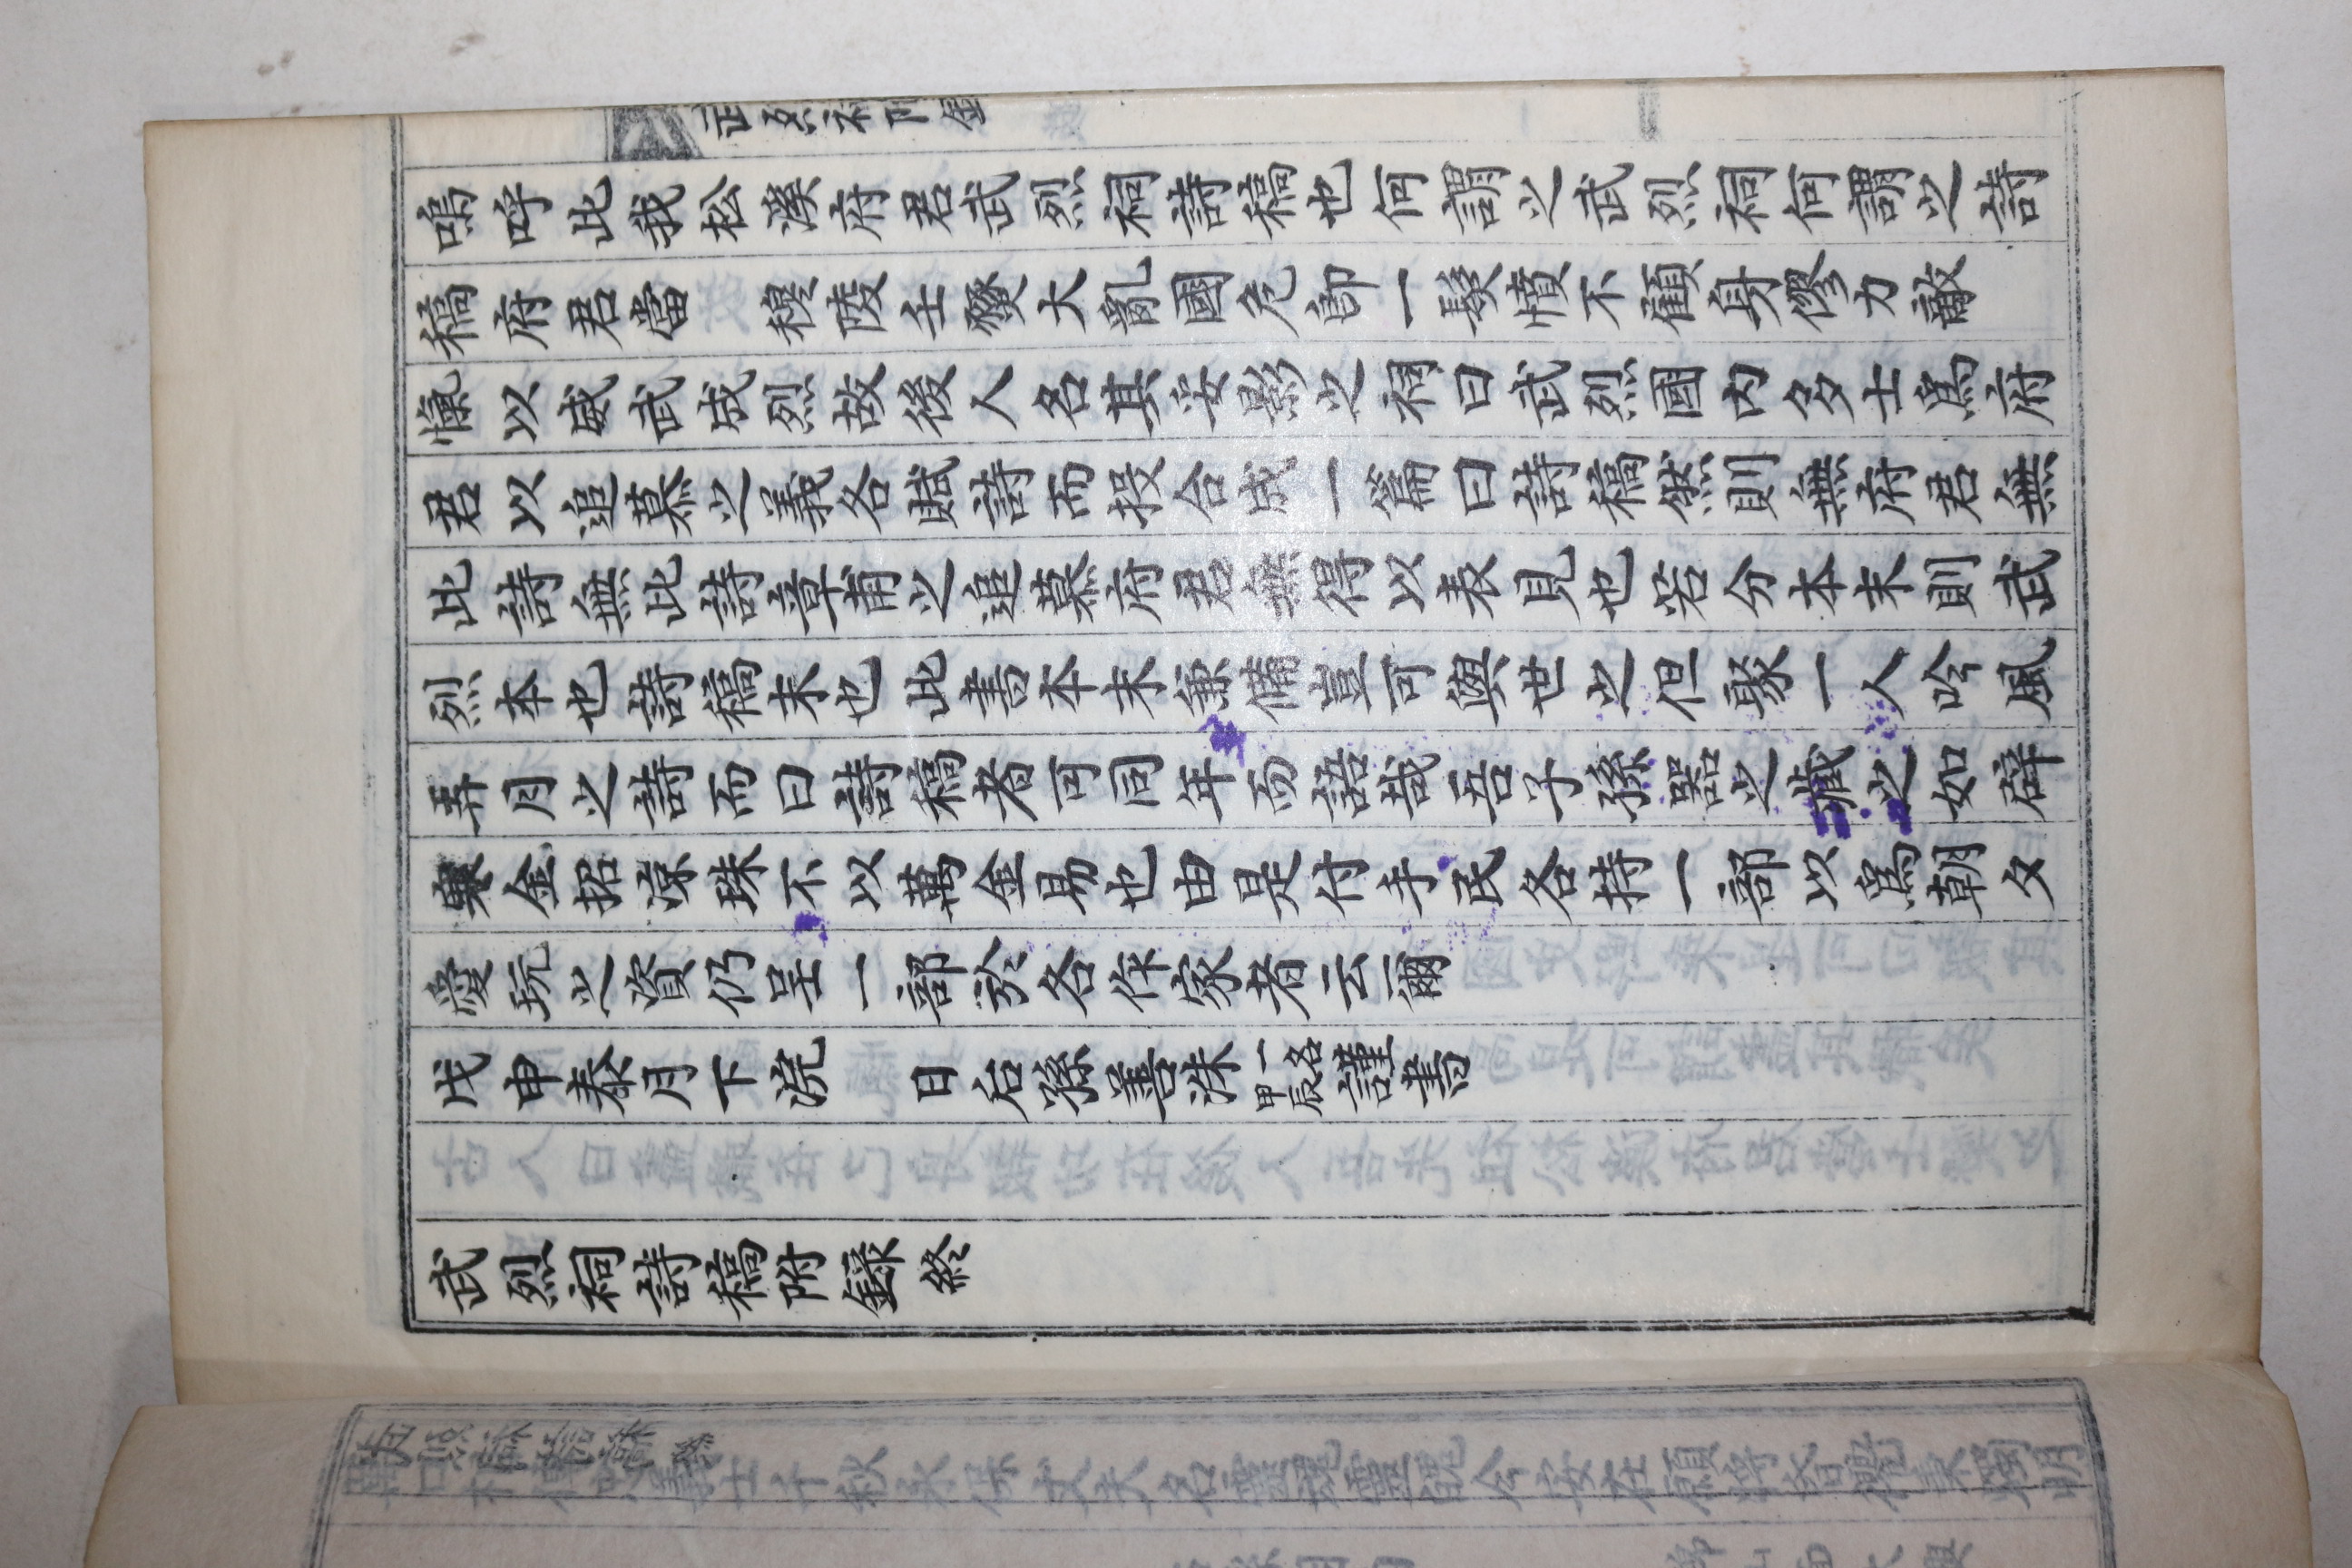 嗚呼此我松溪府君武烈祠詩稿也何謂之武烈祠何謂之詩
稿府君當 穆陵壬燹大亂國危卽一髮憤不顧身僇力敵
愾以威武成烈故後人名其妥影之祠曰武烈國內多士爲府
君以追慕之義各賦詩而投合成一篇曰詩稿然則無府君無
此詩無此詩章甫之追慕府君無得以表見也若分本末則武
烈本也詩稿末也此書本末兼備豈可與世之但聚一人吟風
弄月之詩而曰詩稿者可同年而語哉吾子孫器之藏之如辟
寒金招涼珠不以萬金易也由是付手民各持一部以爲朝夕
愛玩之資仍呈一部於各作家者云爾
戊申泰月下浣 日后孫善洙一名甲辰謹書
武烈祠詩稿附錄終